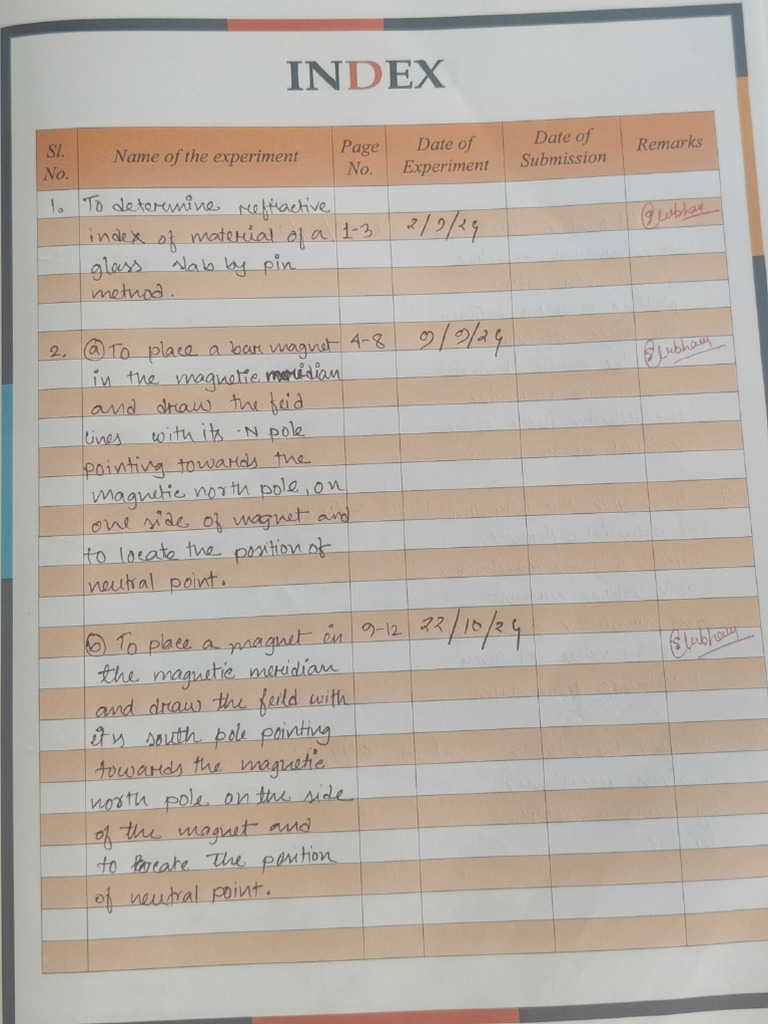 INDEX
Sl. No. Name of the experiment Page No. Date of Experiment Date of Submission Remarks
1. To determine refractive
index of material of a 1-3 2/9/24 Shubham
glass slab by pin
method.
2. (a) To place a bar magnet 4-8 9/9/24 Shubham
in the magnetic meridian
and draw the feid
lines with its N pole
pointing towards the
magnetic north pole, on
one side of magnet and
to locate the position of
neutral point.
(b) To place a magnet in 9-12 22/10/24 Shubham
the magnetic meridian
and draw the feild with
it's south pole pointing
towards the magnetic
north pole on the side
of the magnet and
to locate the position
of neutral point.